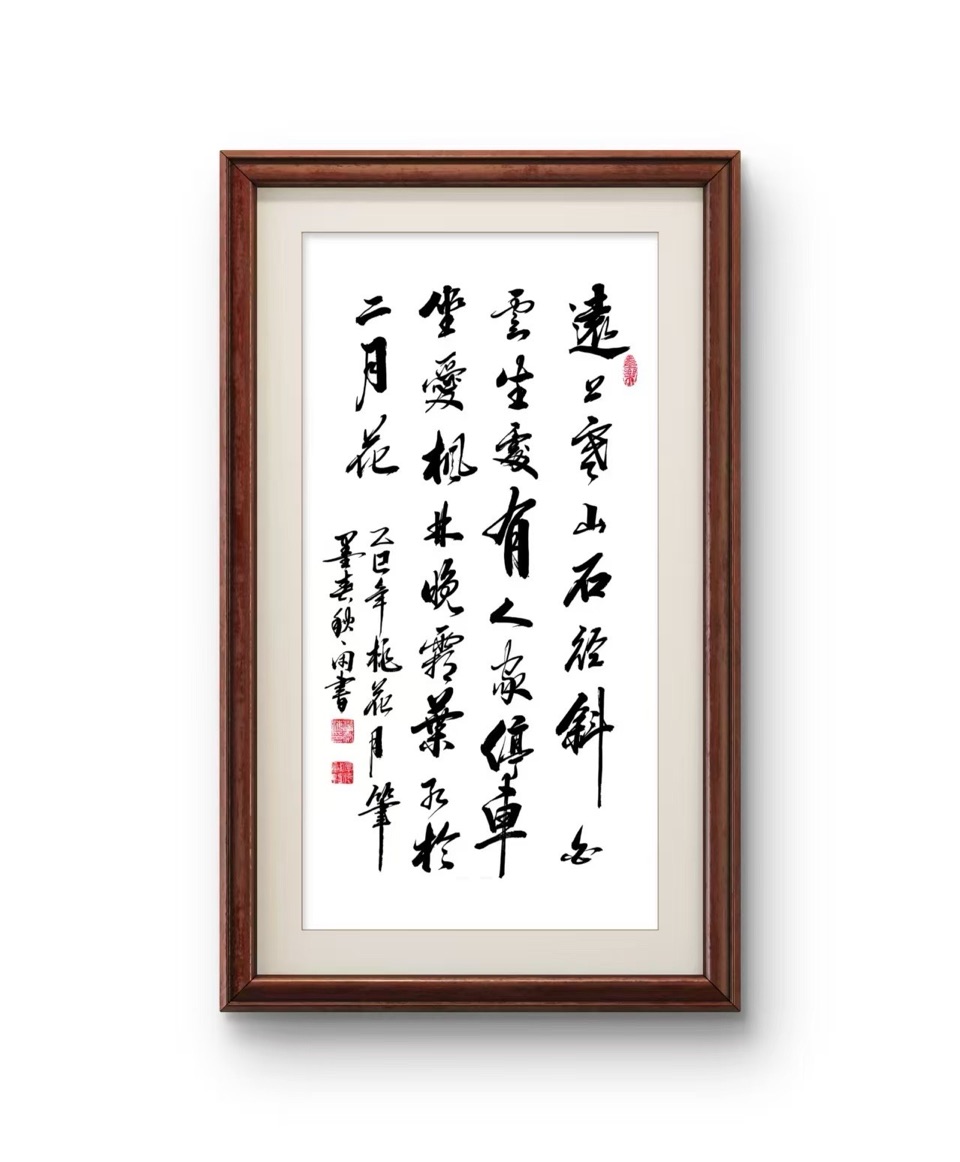 遠上寒山石徑斜白
雲生處有人家停車
坐愛楓林晚霜葉紅於
二月花
乙巳年桃花月筆
墨春秋書